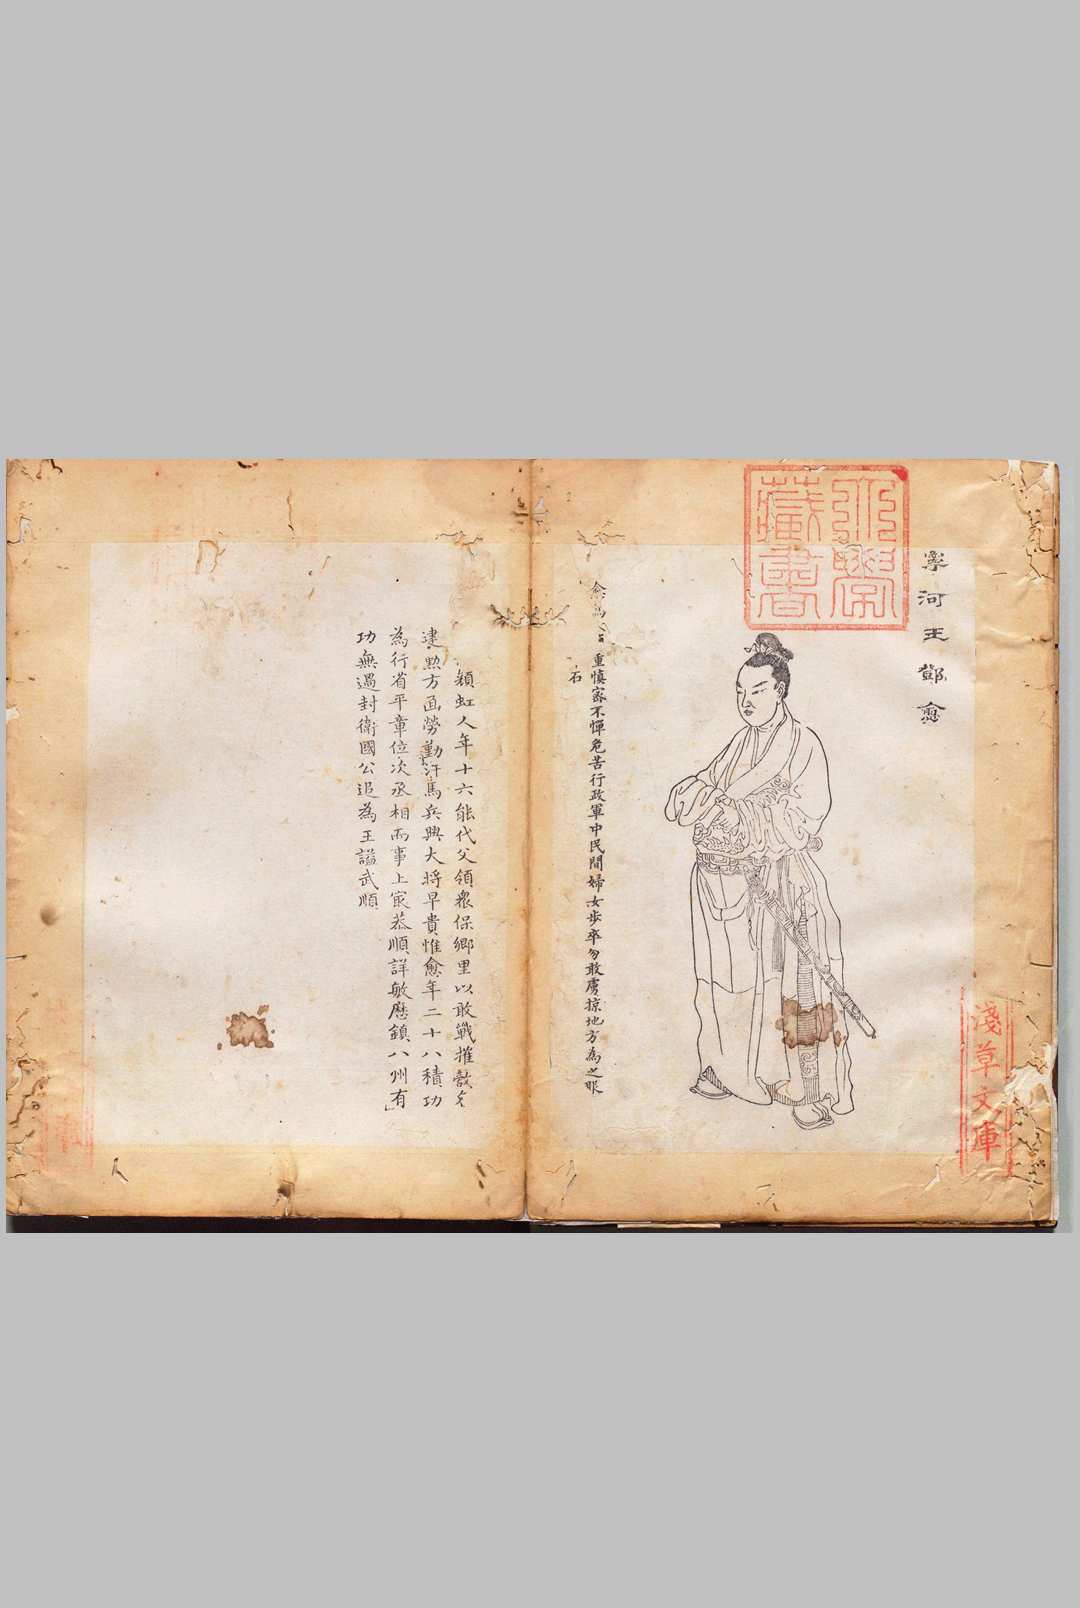 寧河王鄧愈
大學
藏書
淺草文庫
愈為
重慎密不憚危苦行政軍中民間婦女步卒勿敢虜掠地方為之眼
石
頴虹人年十六能代父領衆保鄉里以敢戰摧敵
建勲方面勞勤汗馬兵興大將早貴惟愈年二十八積功
為行省平章位次丞相而事上㝡恭順詳敏歷鎮八州有
功無過封衛國公追為王謚武順